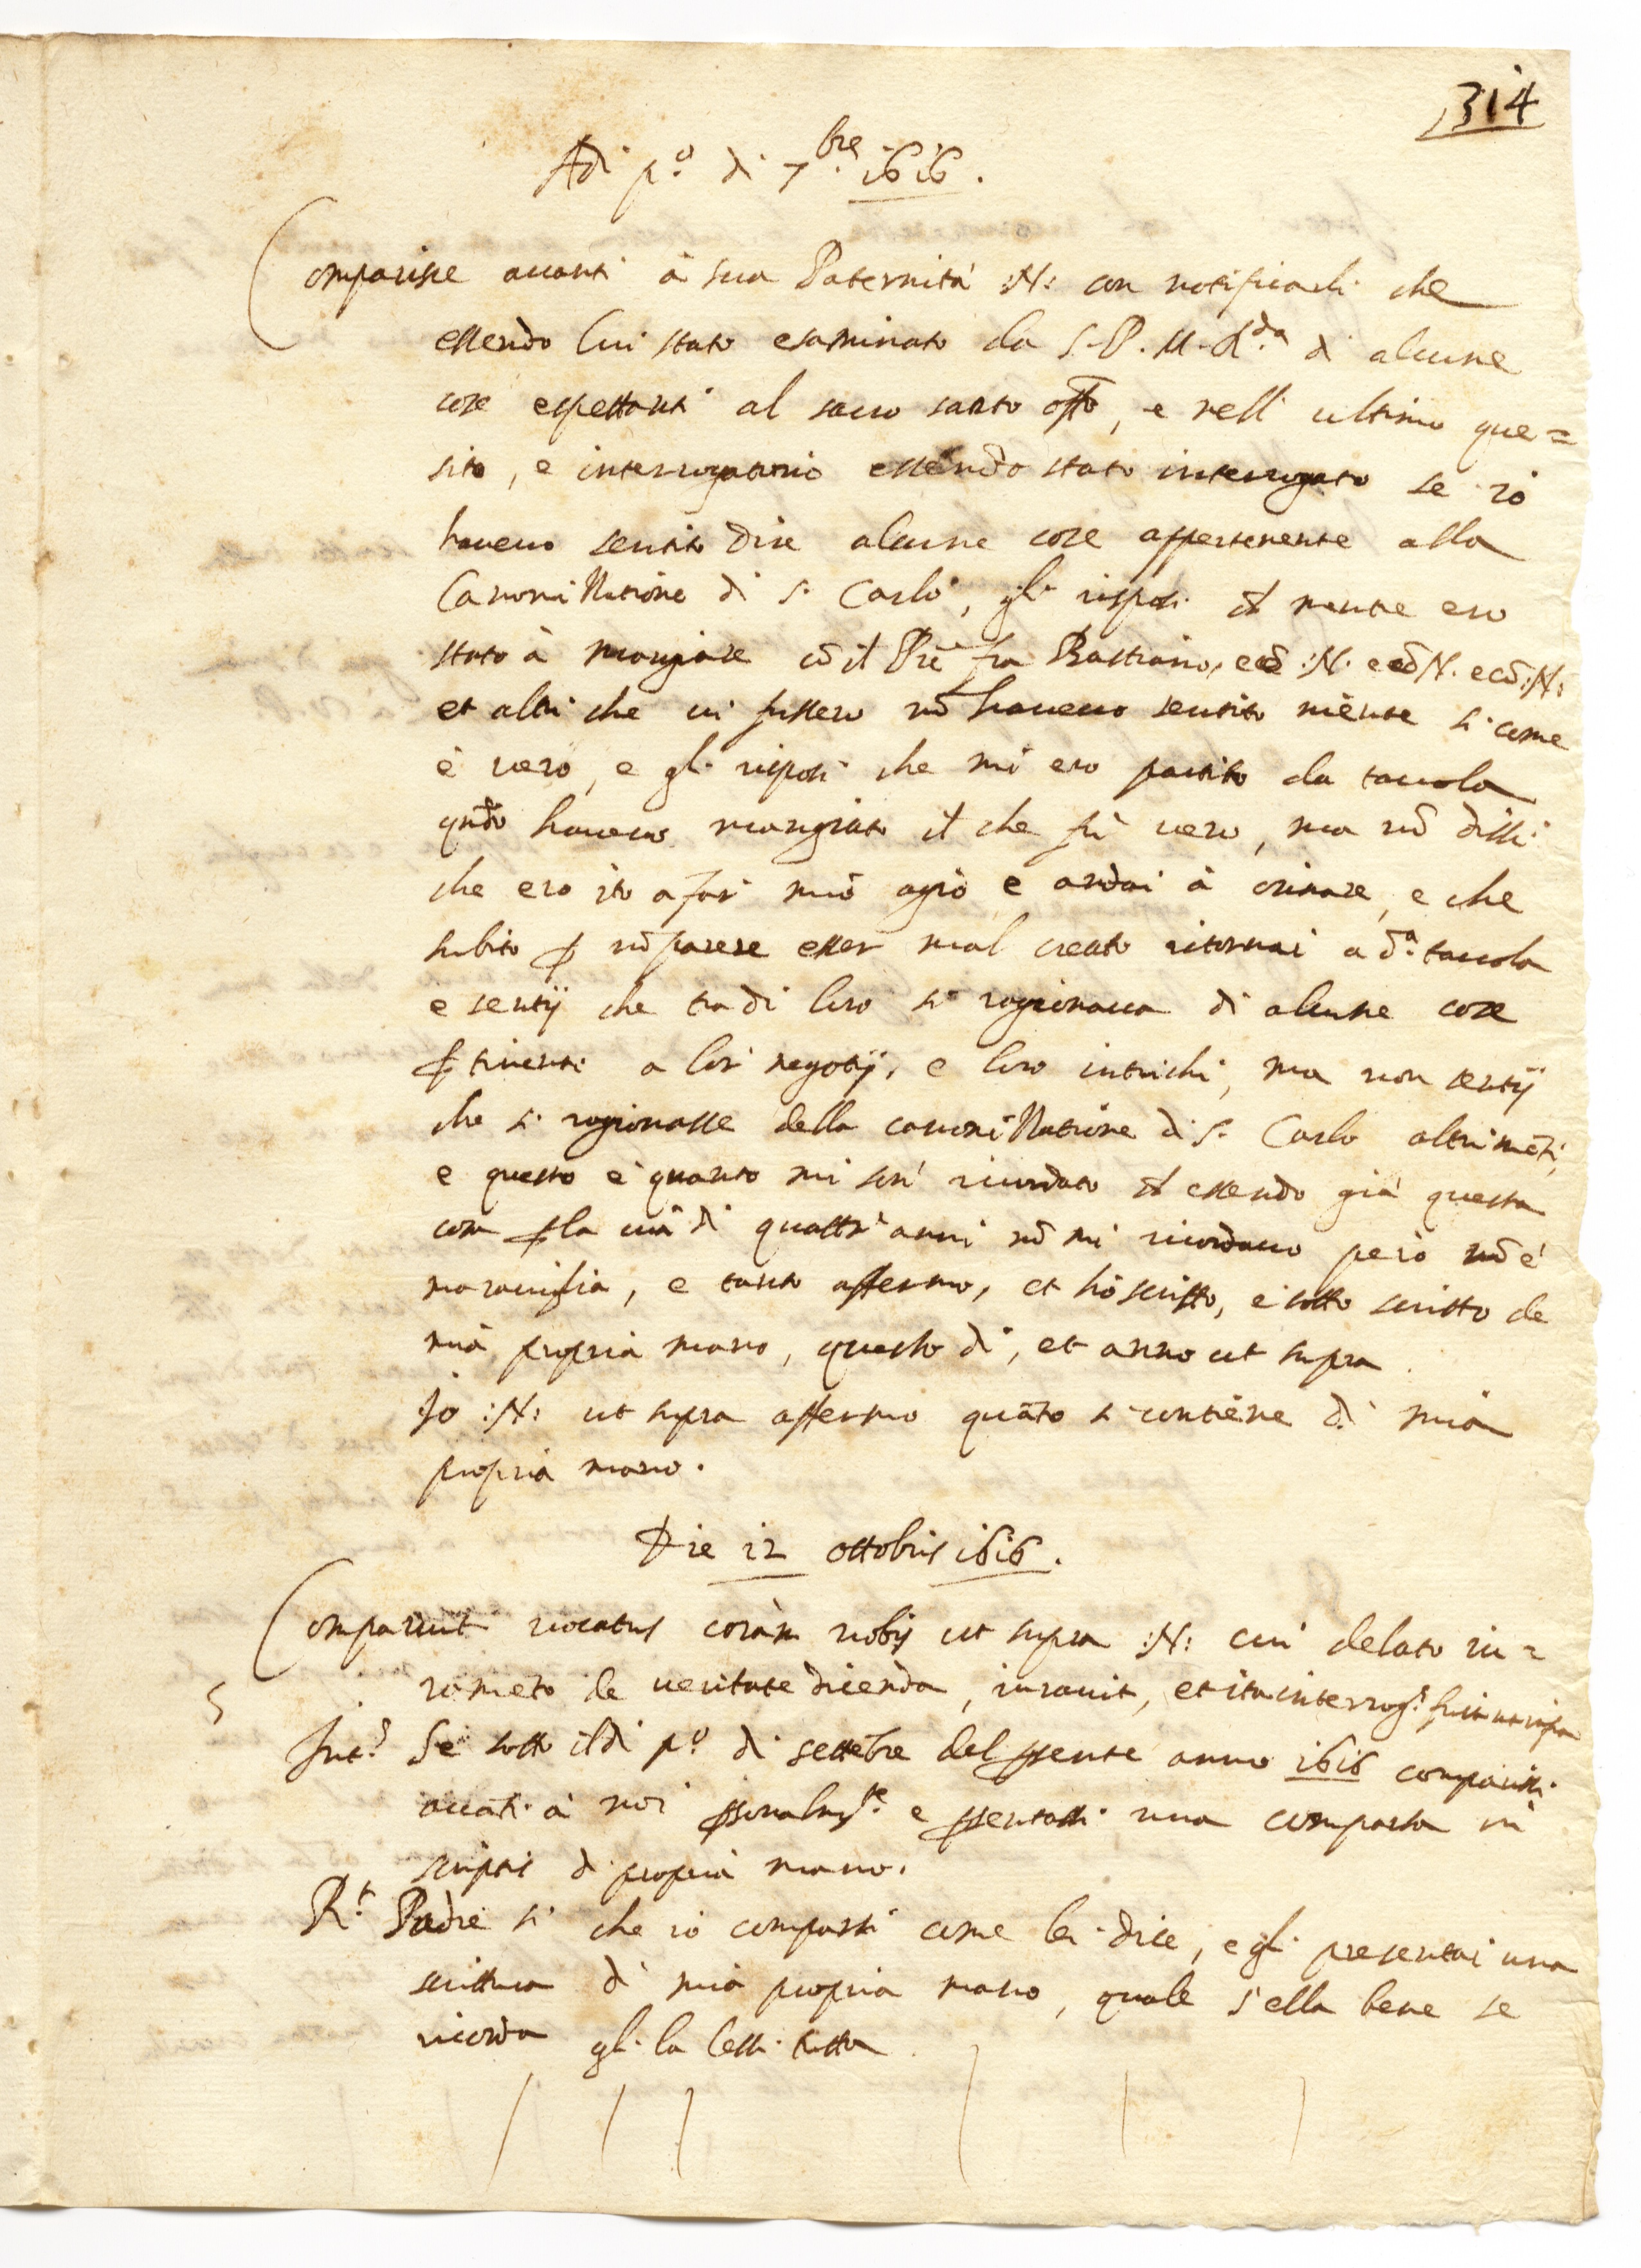 314
Adi p.º di 7.bre 1616.
Comparisse auanti à sua Paternità :N: con notificarli che
essendo lui stato esaminato da S. P. M. R.da di alcune
cose espettanti al sacro santo offo, e nell' ultimo que=
sito, e interrogatorio essendo stato interrogato se io
haveuo sentito dire alcune cose appertenente alla
Canonizzatione di S. Carlo, gli risposi et mentre ero
stato à mangiare cō il Prē fra Bastiano, e cō :N: e cō N. e cō :N:
et altri che ui fussero nō haueuo sentito niente si come
è uero, e gli risposi che mi ero partito da tauola
qñdo haueuo mangiato il che fù uero, ma nō dissi
che ero ito a far mio agio e andai à orinare, e che
subito p nō parere esser mal creato ritornai a d.ª tauola
e sentij che tra di loro si ragionaua di alcune cose
ptinenti a lor negotij, e loro intrichi, ma non sentij
che si ragionasse della canonizzatione di S. Carlo altrimēti,
e questo è quanto mi son' ricordato et essendo già questa
cosa p la uia di quattr' anni nō mi ricordauo però nō è
marauiglia, e tanto affermo, et hò scritto, e sotto scritto de
mia propria mano, questo dì, et anno ut supra
Io :N: ut supra affermo quāto si contiene di mia
propria mano.
Die 12 ottobris 1616.
Comparuit uocatus coràm nobis ut supra :N: cui delato iu=
ramēto de ueritate dicenda, iurauit, et ita interrog.s fuit ut supra
Int.s Se sotto il di p.º di settēbre del pṡente anno 1616 comparissi
auāti à noi psonalm.te e pṡentassi una comparsa in
scriptis di propria mano.
R.t Padre si che io comparsi come lei dice, e gli presentai una
scrittura di mia propria mano, quale s'ella bene se
ricorda gli la lessi tutta